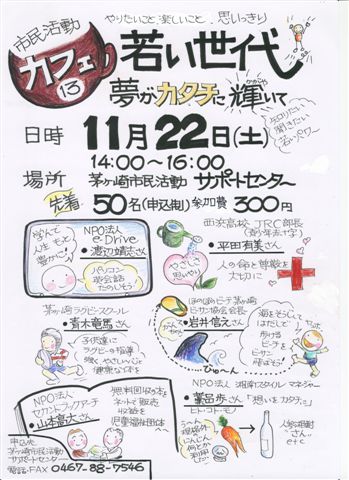 やりたいこと 楽しいこと 思いっきり
市民活動
カフェ
13
若い世代
夢がカタチに輝いて
かがや
知りたい
聞きたい
若いパワー
日時 11月22日(土)
14:00〜16:00
場所 茅ヶ崎市民活動 サポートセンター
先着 50名(申込制) 参加費 300円
学んで
人生もっと
豊かに!
NPO法人
e-Drive
・渡辺靖志さん
パソコン
英会話
たのしそう
西浜高校 JRC部長
(青少年赤十字)
・平田有美さん
やさしい
思いやり
人の命と尊敬を
大切に
茅ヶ崎ラグビースクール
・青木竜馬さん
子供達に
ラグビーを指導
強く やさしい心と
健康な体に!
ほのぼのビーチ茅ヶ崎
ビーサン協会会長
・岩井信えさん
海をそうじして
はだしで
歩ける
ビーチを
ビーサン
飛ばそう!
ぴゅ〜ん
NPO法人
セカンドブックアーチ
・山本高大さん
無料回収の本を
ネットで販売
収益を
児童福祉団体
へ
NPO法人 湘南スタイル マネジャー
・藁品歩さん 「想いをカタチに」
ヒト・コト・モノ
規格外
にんじん
何とか
人参焼酎
etc
申込先
茅ヶ崎市民活動
サポートセンター
電話・FAX 0467-88-7546